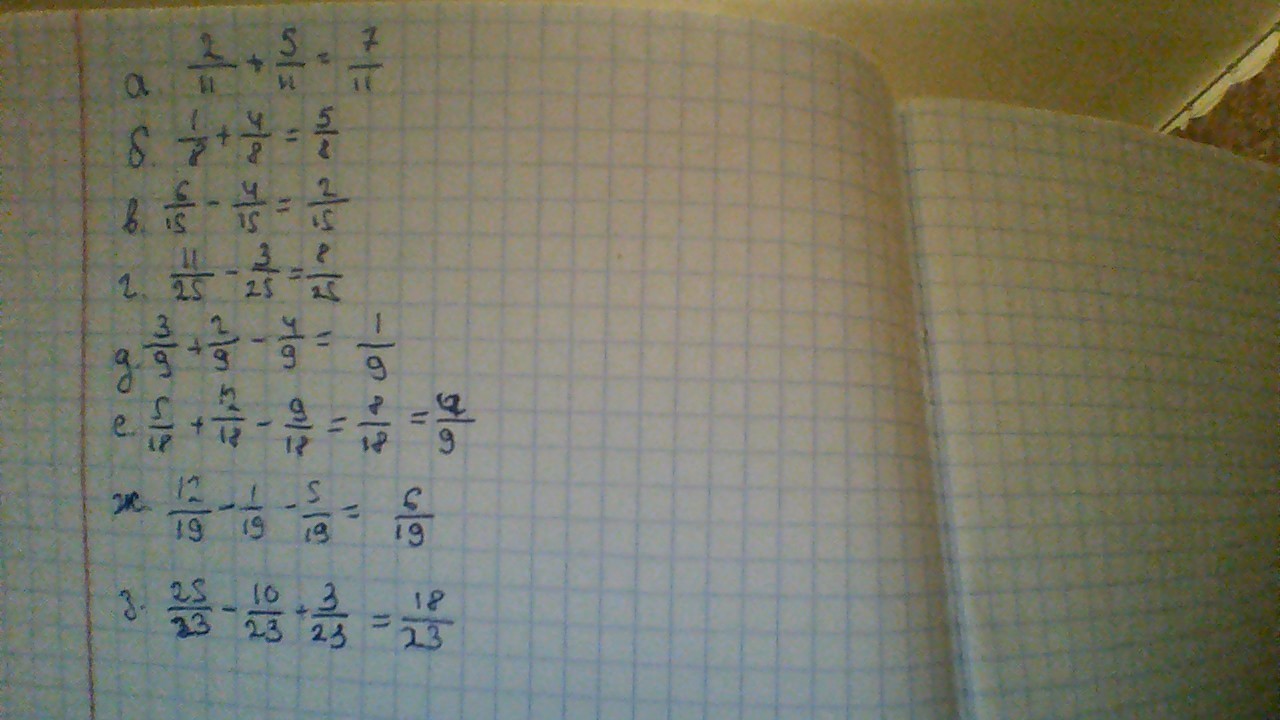 а. 2/11 + 5/11 = 7/11
б. 1/8 + 4/8 = 5/8
в. 6/15 - 4/15 = 2/15
г. 11/25 - 3/25 = 8/25
д. 3/9 + 2/9 - 4/9 = 1/9
е. /18 + /18 - 9/18 = 8/18 = /9
ж. 12/19 - 1/19 - 5/19 = 6/19
з. 25/23 - 10/23 + 3/23 = 18/23